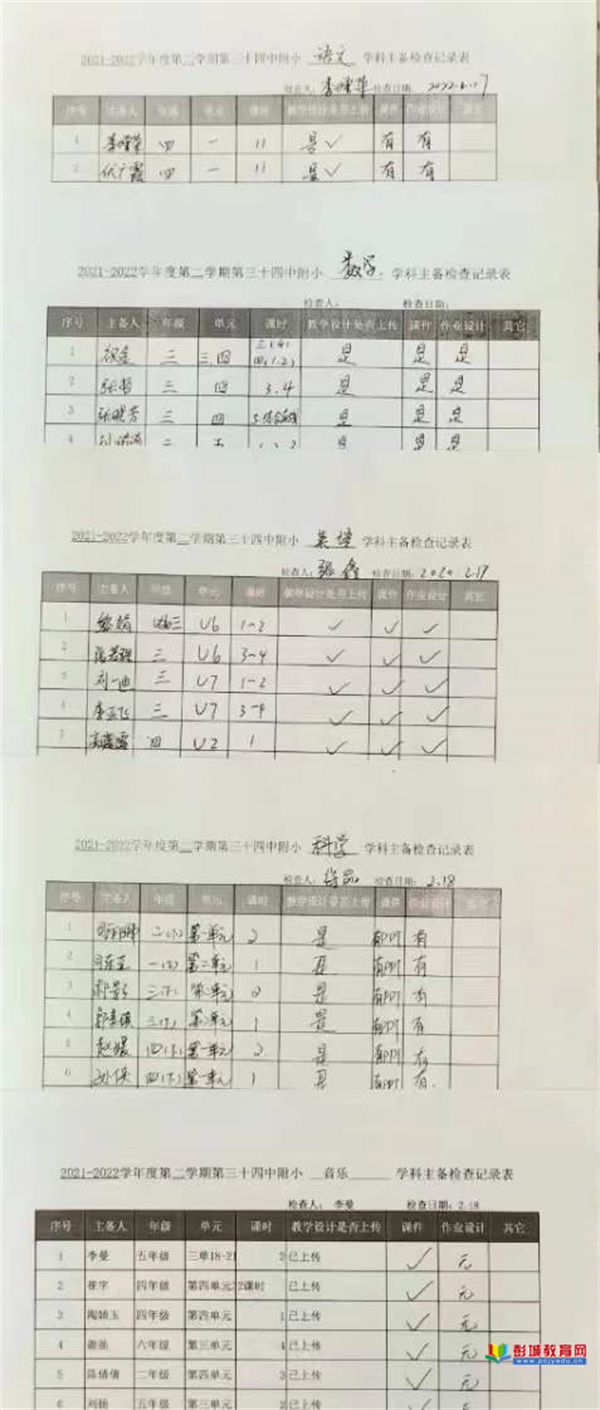 2021-2022学年度第二学期第三十四中附小 语文 学科主备检查记录表
检查日期: 2022.2.17
序号 主备人 年级 单元 课时 教学设计是否上传 课件 作业设计 其它
1 四 一 11 是✓ 有 有
2 伏广霞 四 一 11 是✓ 有 有
2021-2022学年度第二学期第三十四中附小 数学 学科主备检查记录表
检查人: 检查日期:
序号 主备人 年级 单元 课时 教学设计是否上传 课件 作业设计 其它
1 三 三.四 四(1.2) 是 是 是
2 三 四 3.4 是 是 是
3 张晓芳 三 四 是 是 是
4 是 是 是
2021-2022学年度第二学期第三十四中附小 英语 学科主备检查记录表
检查人: 张鑫 检查日期: 2020.2.17
序号 主备人 年级 单元 课时 教学设计是否上传 课件 作业设计 其它
1 三 U6 1-2 ✓ ✓ ✓
2 三 U6 3-4 ✓ ✓ ✓
3 刘一迪 三 U7 1-2 ✓ ✓ ✓
4 李亚飞 三 U7 3-4 ✓ ✓ ✓
5 四 U2 1 ✓ ✓ ✓
2021-2022学年度第二学期第三十四中附小 科学 学科主备检查记录表
检查人: 检查日期: 2.18
序号 主备人 年级 单元 课时 教学设计是否上传 课件 作业设计 其它
1 二(下) 第一单元 2 是 有PPT 有
2 一(下) 第二单元 1 是 有PPT 有
3 三(下) 单元 2 是 有PPT 有
4 三(下) 单元 1 是 有PPT 有
5 赵媛 四(下) 第一单元 2 是 有PPT 有
6 孙侠 四(下) 第一单元 1 是 有PPT 有.
2021-2022学年度第二学期第三十四中附小 音乐 学科主备检查记录表
检查人: 李曼 检查日期: 2.18
序号 主备人 年级 单元 课时 教学设计是否上传 课件 作业设计 其它
1 李曼 五年级 三单18-21 2 已上传 ✓ 无
2 崔宇 四年级 第四单元 2课时 已上传 ✓ 无
3 陶娇玉 四年级 第四单元 1 已上传 ✓ 无
4 谢弛 六年级 第三单元 4 已上传 ✓ 无
5 陈倩倩 二年级 第四单元 3 已上传 ✓ 无
6 刘扬 五年级 第三单元 已上传 ✓ 无
彭城教育网
www.pcjyedu.cn